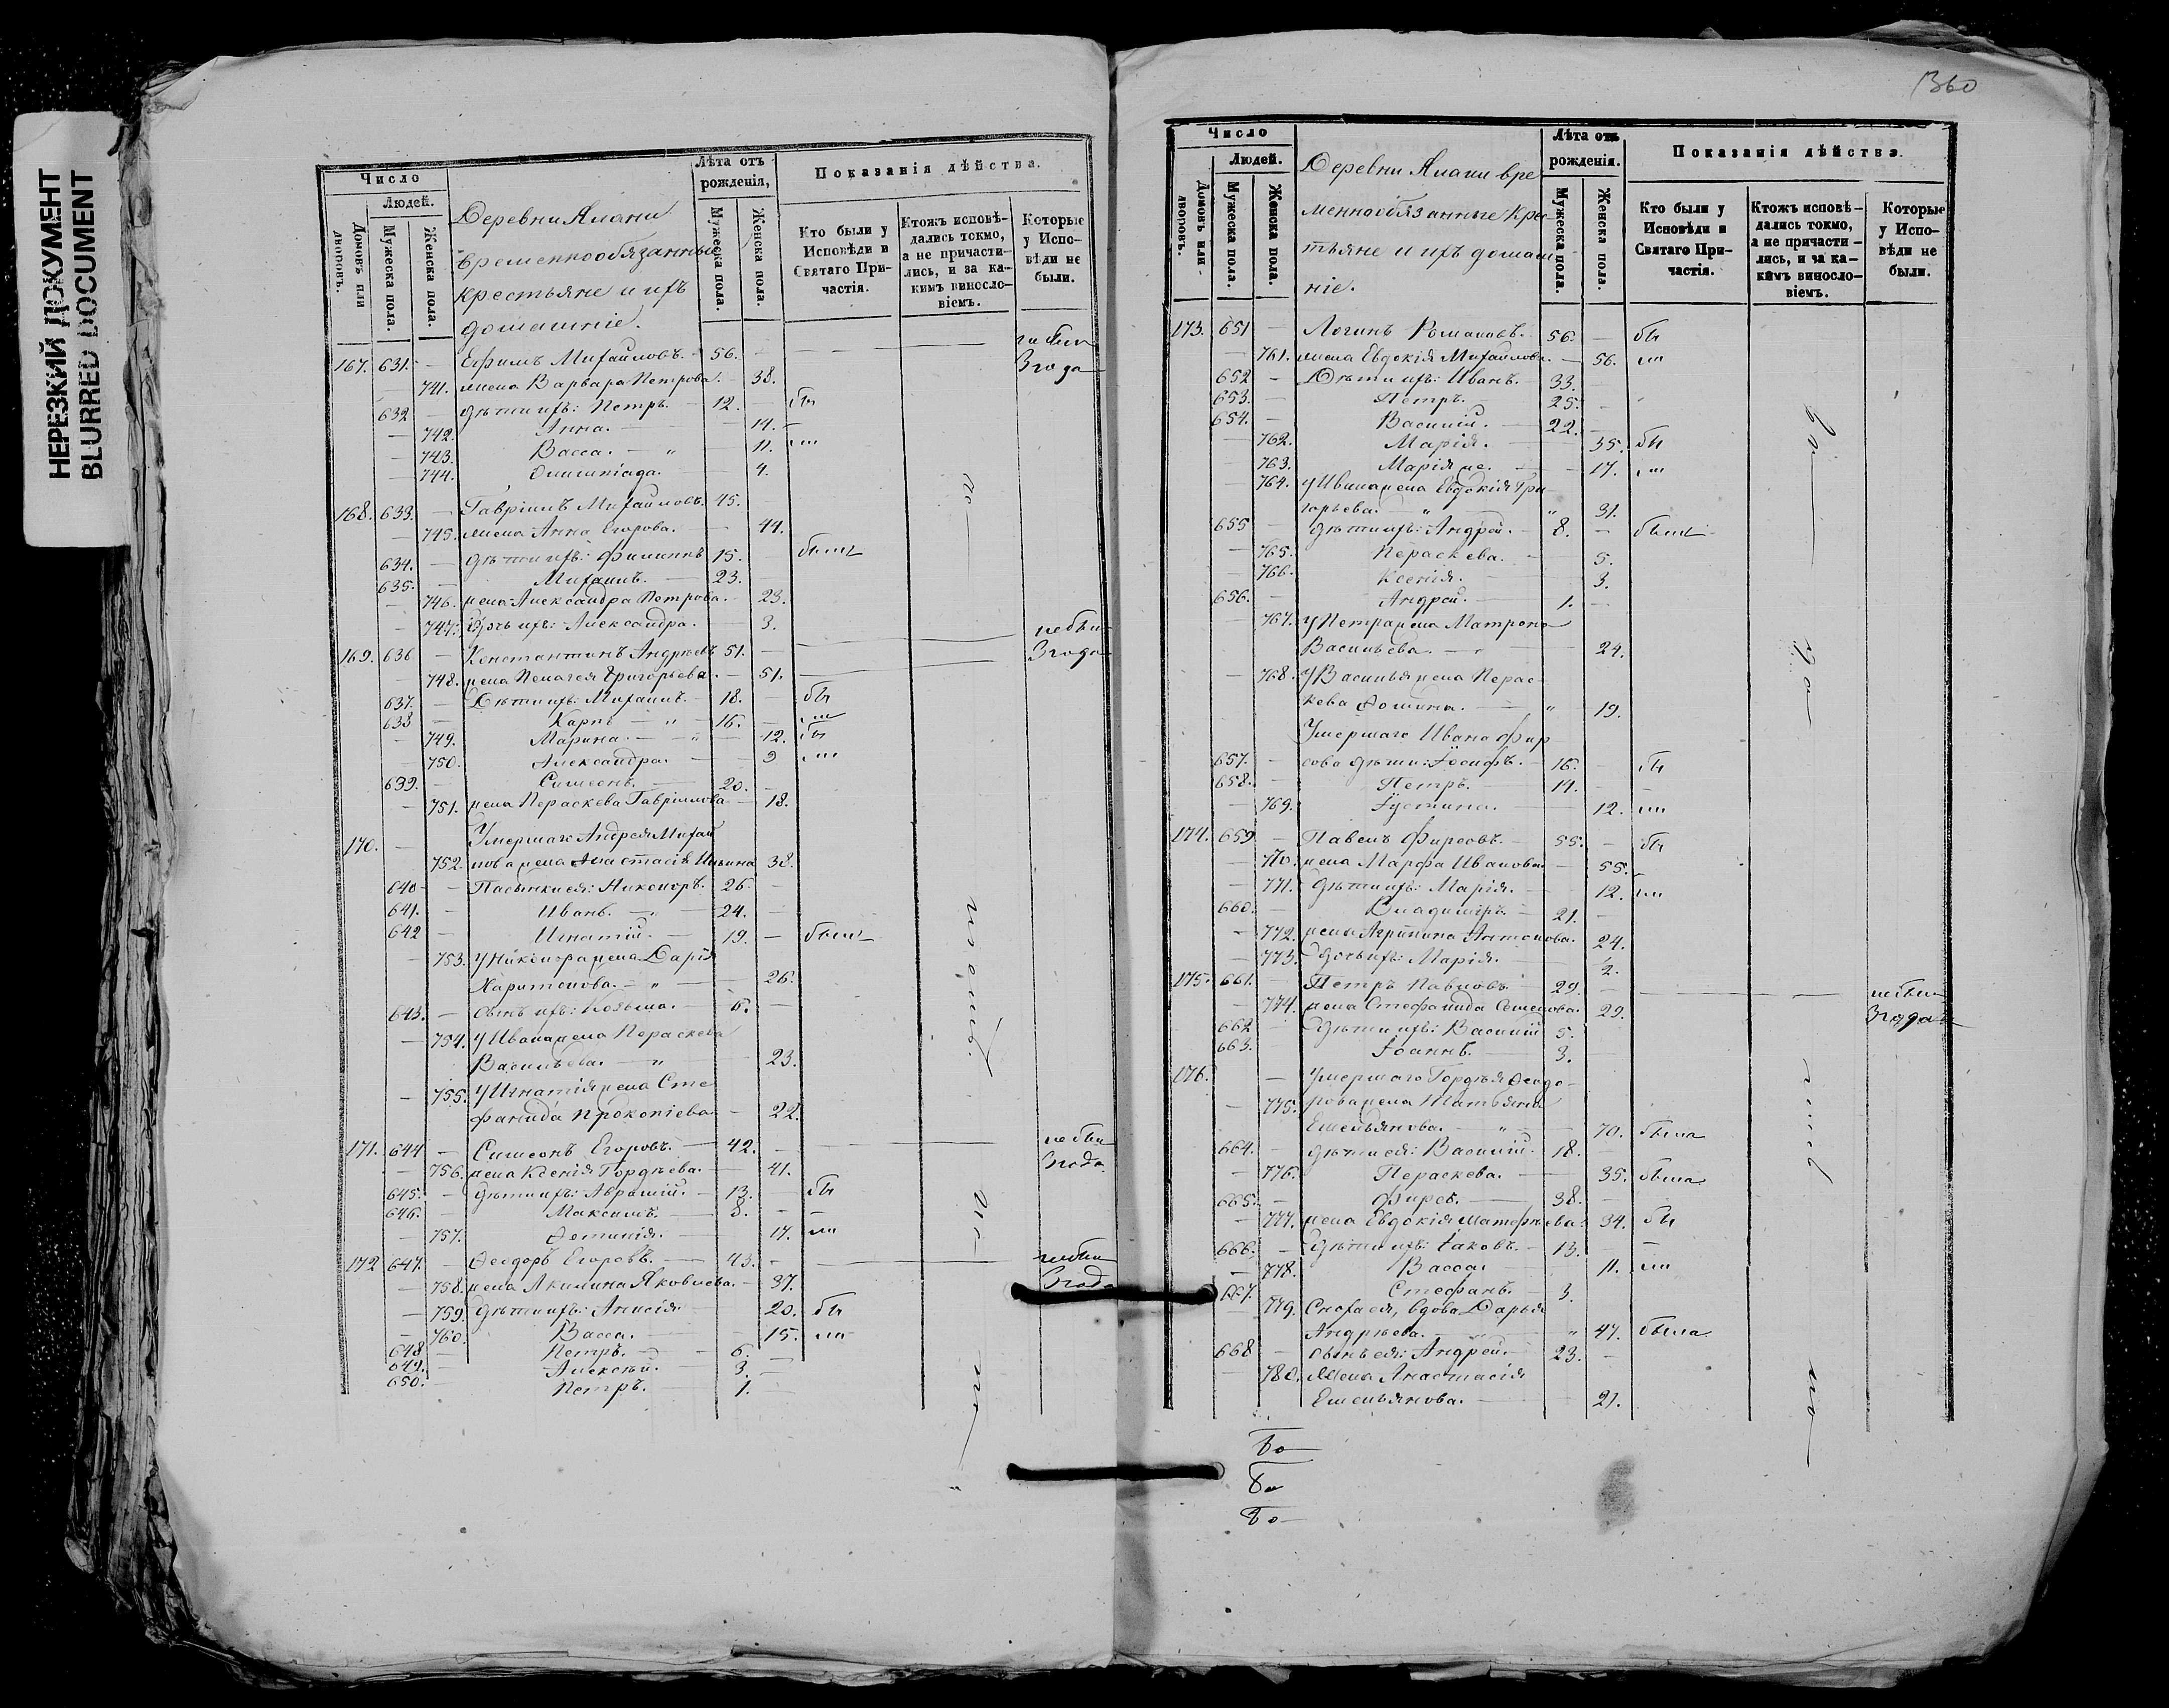 НЕРЕЗКИЙ ДОКУМЕНТ
BLURRED DOCUMENT
Число
Людей.
Домовъ или дворовъ.
Мужеска пола.
Женска пола.
Деревни
временнообязанные
крестьяне и ихъ
домашніе.
Лѣта отъ рожденія,
Мужеска пола.
Женска пола.
Показанія дѣйства.
Кто были у Исповѣди и Святаго Причастія.
Ктожъ исповѣдались токмо, а не причастились, и за какимъ винословіемъ.
Которые у Исповѣди не были.
167. 631. — Ефимъ Михайловъ. — 56. — не были
741. жена Варвара Петрова. — 38. 3 года
632 — дѣти ихъ: Петръ. — 12. бы
742. Анна. — 14. —
743. Васса. — " — 11. ли
744. Олимпіада. — 4.
168. 633. — Гавріилъ Михайловъ. 45.
745. жена Анна Егорова. — 44.
634. — дѣти ихъ: Филиппъ 15. были
635. — Михаилъ. — 23. —
746. жена Александра Петрова. — 23.
747. дочь ихъ: Александра. — 3.
169. 636 — Константинъ Андреевъ 51. — не были
748. жена Пелагея Григорьева. — 51. 3 года
637. — Дѣти ихъ: Михаилъ. — 18. — бы
638 — Карпъ — " — 16. — ли
749. Марина. — " — 12. бы
750. Александра. — 9 ли
639. — Симеонъ. — 20. —
751. жена Пераскева Гавріилова — 18.
170. — Умершаго Андрея Михай
752. лова жена Анастасія Ильина 38.
640 — Пасынки ея: Никоноръ. 26. —
641. — Иванъ. — " 24. —
642 — Игнатій. — 19. — были
753. У Никонора жена Дарія
Харитонова. — " — 26.
643. — сынъ ихъ: Козьма. — 6. —
754. У Ивана жена Пераскева
Васильева. — " — 23.
755. У Игнатія жена Сте
фанида Прокопіева — 22.
171. 644 — Симеонъ Егоровъ. — 42. — не были
756. жена Ксенія Гордѣева. — 41. 3 года.
645. — дѣти ихъ: — 13. — бы
646. — Максимъ. — 8. — —
757. Фотинія. — 17. ли
172 647. — Ѳеодоръ Егоровъ. — 43. — не были
758. жена Акилина Яковлева. — 37. 3 года
759. дѣти ихъ: Анисія — 20. бы
760. Васса. — 15. ли
648 — Петръ. — 6. —
649. — Алексѣй. — 3. —
650. — Петръ. — 1. —
360
Число
Людей.
Домовъ или дворовъ.
Мужеска пола.
Женска пола.
Деревни вре
меннообязанные кре
тьяне и ихъ домаш
ніе.
Лѣта отъ рожденія.
Мужеска пола.
Женска пола.
Показанія дѣйства.
Кто были у Исповѣди и Святаго Причастія.
Ктожъ исповѣдались токмо, а не причастились, и за какимъ винословіемъ.
Которые у Исповѣди не были.
173. 651 — Логинъ Романовъ. 56. — бы
761. жена Евдокія Михайлова. — 56. ли
652 — Дѣти ихъ: Иванъ. — 33. —
653. — Петръ. — 25. —
654. — Василій. — 22. —
762. Марія. — 35. бы
763. Марія же. — 17. ли
764. У Ивана жена Евдокія Гри
горьева. — " — " 31.
655 — дѣти ихъ: Андрей. — 8. — были
765. Пераскева. — 5.
766. Ксенія. — 3.
656. — Андрей. — 1. —
767. У Петра жена Матрона
Васильева. — 24.
768. У Василья жена Перас
кева Фомина. — " 19.
Умершаго Ивана Фир
657. — сова дѣти: Іосифъ. — 16. — бы
658. — Петръ. — 14. — —
769. Іустина. — 12. ли
174. 659 — Павелъ Фирсовъ. — 55. — бы
770. жена Марфа Иванова — 55.
771. дѣти ихъ: Марія. — 12. ли
660. — Владиміръ. — 21. —
772. жена Агрипина Антонова. 24.
773. дочь ихъ: Марія. — 2.
175. 661. — Петръ Павловъ — 29. — не были
774. жена Стефанида Семенова. 29. 3 года
662 — дѣти ихъ: Василій 5. —
663. — Іоаннъ. — 3. —
176. — Умершаго Гордѣя Ѳеодо
775. рова жена Татьяна
Емельянова. — " — 70. была
664. — дѣти ея: Василій. — 18. —
776. Пераскева. — 35. была
665. — Фирсъ. — 38. —
777. жена Евдокія Матфѣева. 34. бы
666. — дѣти ихъ: Іаковъ. — 13. — —
778. Васса. — 11. ли
667. — Стефанъ. — 3.
779. Сноха ея, вдова Дарья
Андрѣева. — " 47. была
668 — сынъ ея: Андрей. — 23. —
780. Жена Анастасія
Емельянова. — 21.